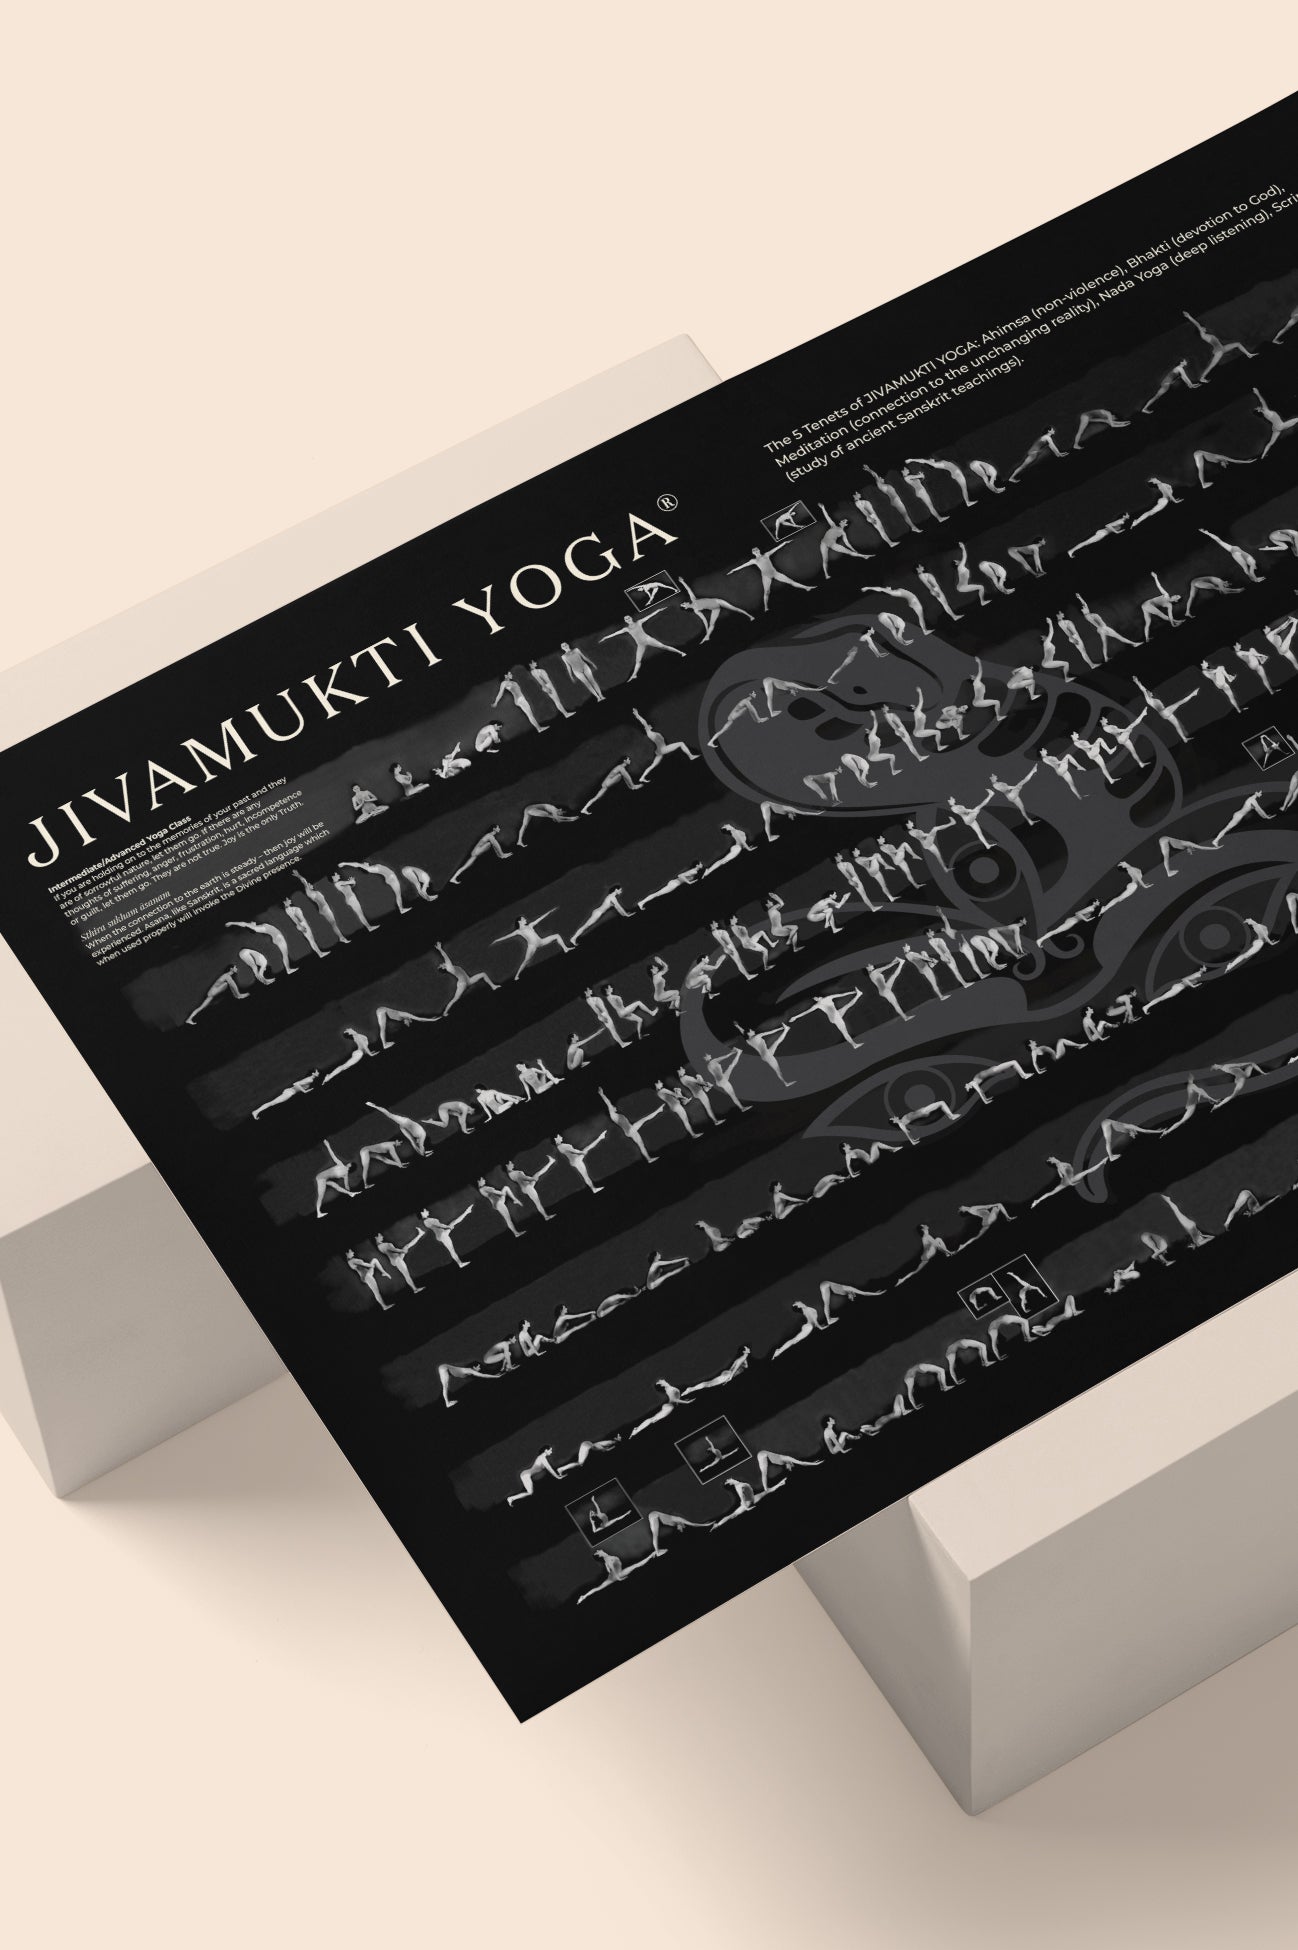 JIVAMUKTI YOGA®
Intermediate/Advanced Yoga Class
If you are holding on to the memories of your past and they
are of sorrowful nature, let them go. If there are any
thoughts of suffering, anger, frustration, hurt, incompetence
or guilt, let them go. They are not true. Joy is the only Truth.
Sthira sukham āsanam
When the connection to the earth is steady – then joy will be
experienced. Asana, like Sanskrit, is a sacred language which
when used properly will invoke the Divine presence.
The 5 Tenets of JIVAMUKTI YOGA: Ahimsa (non-violence), Bhakti (devotion to God),
Meditation (connection to the unchanging reality), Nada Yoga (deep listening), Scri
(study of ancient Sanskrit teachings).